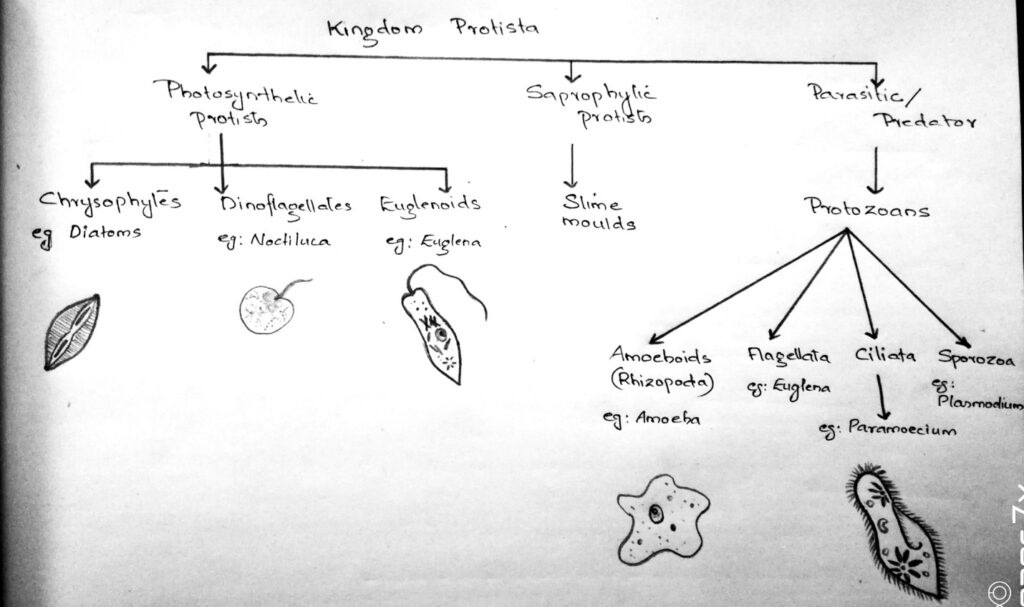 Kingdom Protista
Photosynthetic
protists
Saprophytic
protists
Parasitic/
Predator
Chrysophytes
eg Diatoms
Dinoflagellates
eg: Noctiluca
Euglenoids
eg: Euglena
Slime
moulds
Protozoans
Amoeboids
(Rhizopoda)
eg: Amoeba
Flagellata
eg: Euglena
Ciliata
eg: Paramoecium
Sporozoa
eg:
Plasmodium